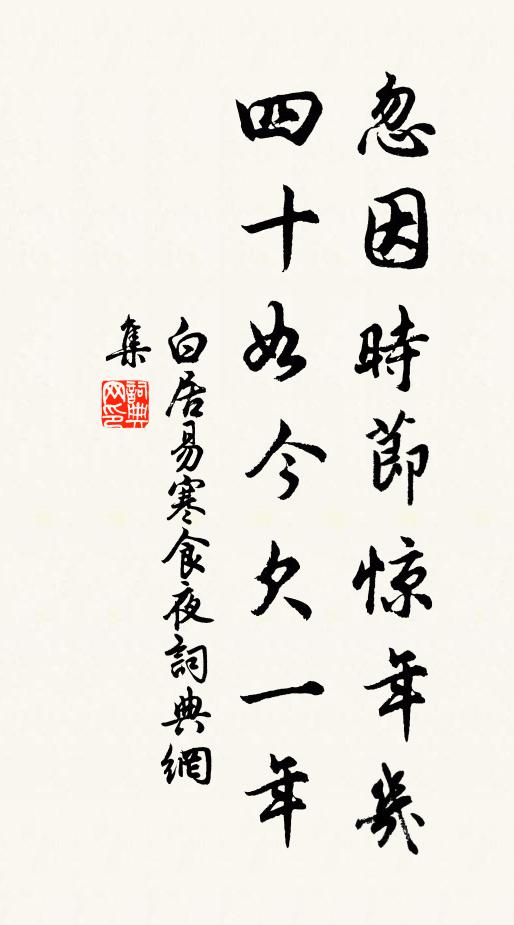 忽因時節惊年幾
四十如今欠一年
白居易寒食夜詞典網
集
詞典網印